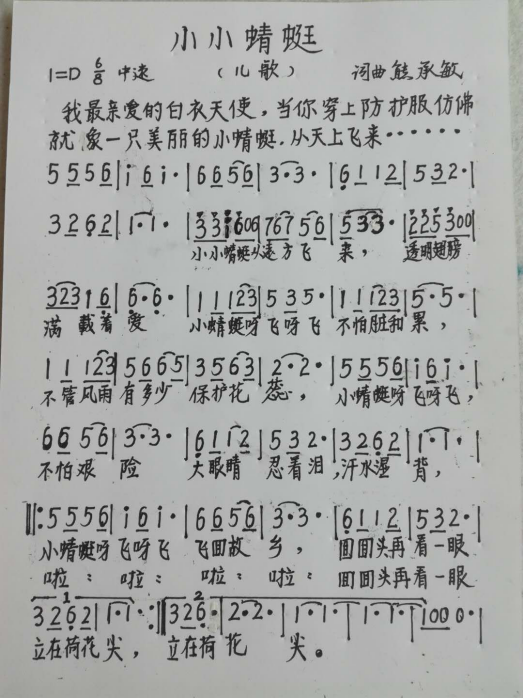 小小蜻蜓
1=D 6/8 中速 （儿歌） 词曲熊承敏
我最亲爱的白衣天使，当你穿上防护服仿佛
就象一只美丽的小蜻蜓.从天上飞来······
5 5 5 6 | i 6 i· | 6 6 5 6 | 3· 3· | 6 1 1 2 | 5 3 2· |
3 2 6 2 | 1· 1· | 3 3 i 6 0 6 | 7 6 7 5 6 | 5 3 3· | 2 2 5 3 0 0 |
小小蜻蜓从远方飞 来， 透明翅膀
3 2 3 1 6 | 6· 6· | 1 1 1 2 3 | 5 3 5· | 1 1 1 2 3 | 5· 5· |
满 载着 爱 小蜻蜓呀 飞呀飞 不怕脏和 累，
1 1 1 2 3 | 5 6 6 5 | 3 5 6 3 | 2· 2· | 5 5 5 6 | i 6 i· |
不管风雨 有多少 保护花 蕊， 小蜻蜓呀 飞呀飞，
6 6 5 6 | 3· 3· | 6 1 1 2 | 5 3 2· | 3 2 6 2 | 1· 1· |
不怕艰 险 大眼睛 忍着泪，汗水湿 背，
‖: 5 5 5 6 | i 6 i· | 6 6 5 6 | 3· 3· | 6 1 1 2 | 5 3 2· |
小蜻蜓呀 飞呀飞 飞回故 乡， 回回头再看一眼
啦： 啦： 啦： 啦： 回回头再看一眼
1 2
3 2 6 2 | 1· 1· :‖ 3 2 6· | 2· 2· | 1· 1· | 1· 1· | 1 0 0 0· |
立在荷花 尖， 立在荷 花 尖。